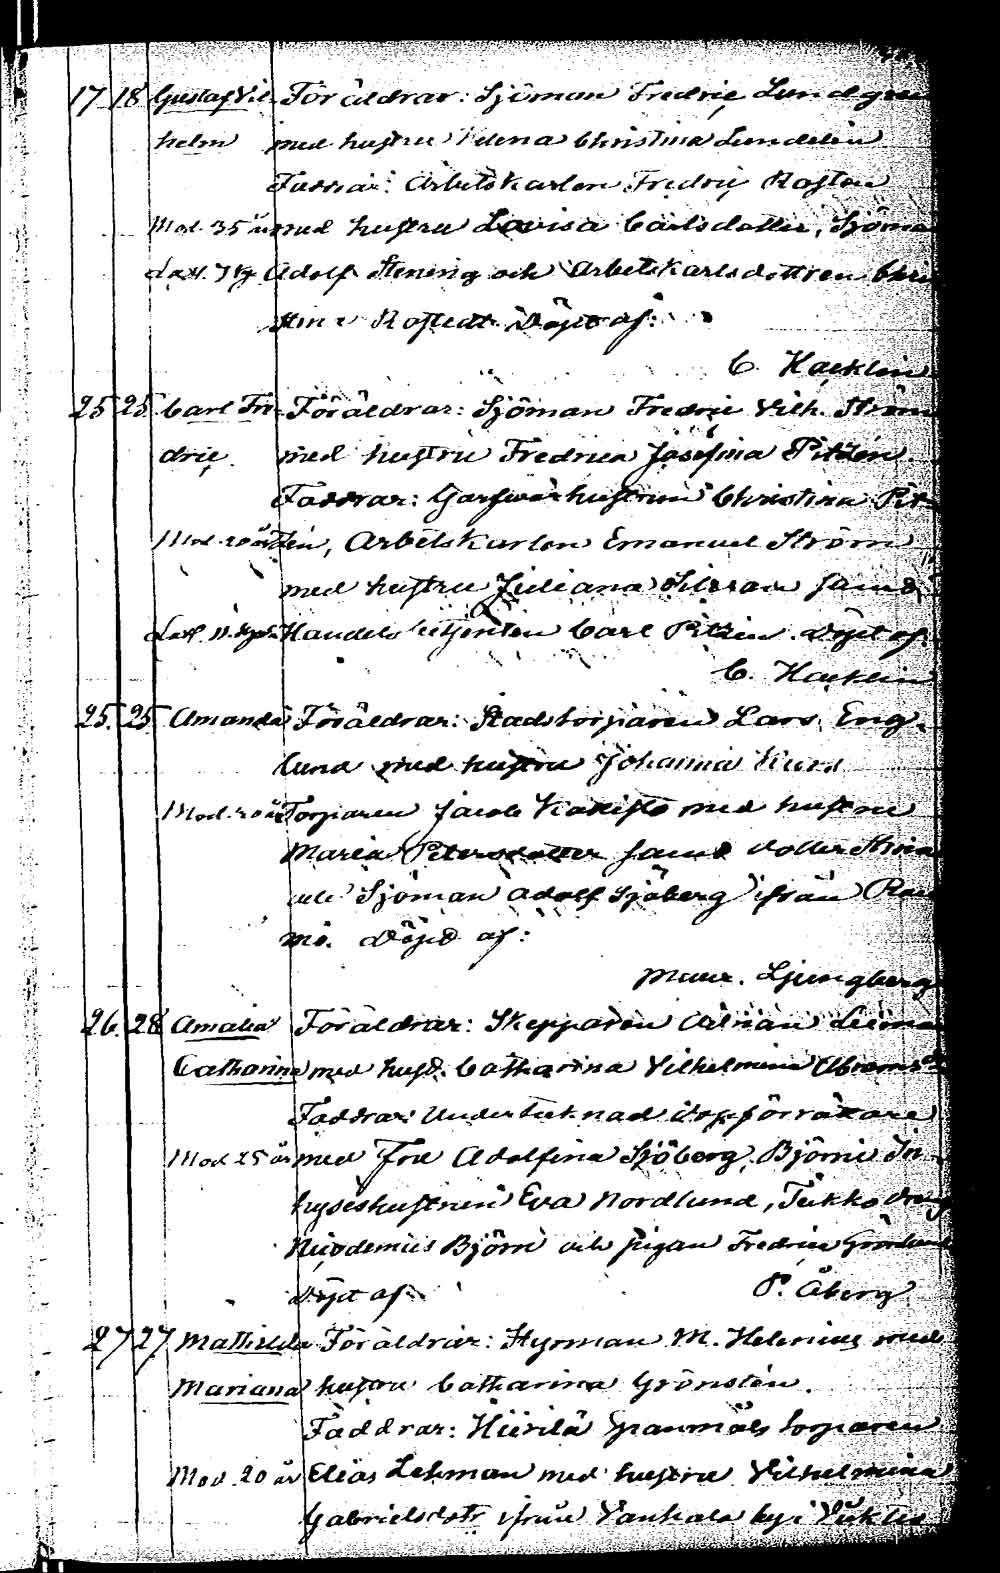 17 18 Gustaf Vil- Föräldrar: Sjöman Fredric Lundgren
helm med hustru Helena Christina Lundelin
Faddrar: Arbetskarlen Fredric Rosten
Mod. 35 år med hustru Lovisa Carlsdotter, Sjöman
Adolf Stening och Arbetskarlsdottren Chri
stina Rostedt. Döpt af:
C. Hacklin
25 25 Carl Fre- Föräldrar: Sjöman Fredric Vilh. Ström
dric med hustru Fredrica Josefina Pitzén.
Faddrar: Garfvarhustrun Christina Pit-
Mod. 20 år zén, Arbetskarlen Emanuel Ström
med hustru Juliana samt
Handels betjenten Carl Pitzén. Döpt af.
C. Hacklin
25. 25 Amanda Föräldrar: Stadstorparen Lars Eng-
lund med hustru Johanna
Mod. 20 år Torparen Jacob med hustru
Maria Petersdotter samt dotter Stina
och Sjöman Adolf Sjöberg ifrån Rau
mo. Döpt af:
Maur. Ljungberg
26. 28 Amalia Föräldrar: Skepparen Adrian
Catharina med hust. Catharina Vilhelmina Abramsd.
Faddrar: Undertecknad dopförrättare
Mod 25 år med Fru Adolfina Sjöberg, Björni In-
hyseshustrun Eva Nordlund, Tiikko dreng
Nicodemus Björni och pigan Fredrica Grönlund
Döpt af. P. Åberg
27 27. Mathilda Föräldrar: Styrman M. Helenius med
Mariana hustru Catharina Grönstén.
Faddrar: Hiirilä torparen
Mod. 20 år Elias Lehman med hustru Vilhelmina
Gabrielsdotr ifrån Vanhala by i